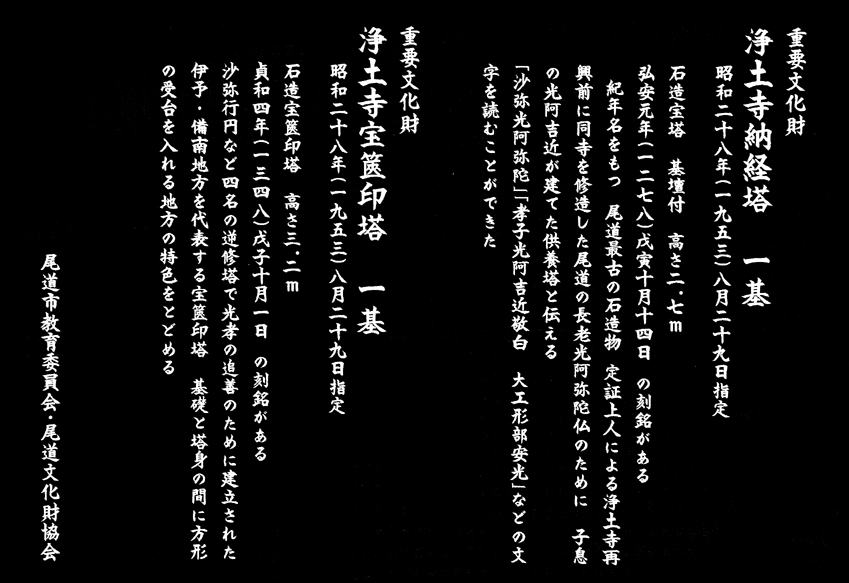 重要文化財
浄土寺納経塔　一基
昭和二十八年(一九五三)八月二十九日指定
石造宝塔　基壇付　高さ二.七m
弘安元年(一二七八)戊寅十月十四日　の刻銘がある
紀年名をもつ　尾道最古の石造物　定証上人による浄土寺再
興前に同寺を修造した尾道の長老光阿弥陀仏のために　子息
の光阿吉近が建てた供養塔と伝える
「沙弥光阿弥陀」「孝子光阿吉近敬白　大工形部安光」などの文
字を読むことができた
重要文化財
浄土寺宝篋印塔　一基
昭和二十八年(一九五三)八月二十九日指定
石造宝篋印塔　高さ三.二m
貞和四年(一三四八)戊子十月一日　の刻銘がある
沙弥行円など四名の逆修塔で光孝の追善のために建立された
伊予・備南地方を代表する宝篋印塔　基礎と塔身の間に方形
の受台を入れる地方の特色をとどめる
尾道市教育委員会・尾道文化財協会